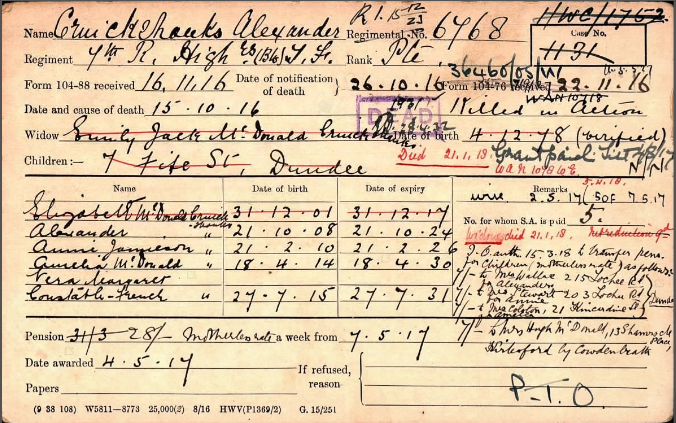 R 1. 15 12/23
HWC/1752
Name Cruickshanks Alexander Regimental No. 6768
Case No.
1131
Regiment 7th R. High rs (Blk) T. F. Rank Pte
36460/05/W
Form 104-88 received 16.11.16 Date of notification of death 26.10.16 Form 104-76 received 22.11.16
Date and cause of death 15.10.16 DEAD Killed in Action
Widow Emily Jack Mc Donald Cruickshanks Date of birth 4.12.78 (verified)
Died 21.1.18.
Children:— 7 Fife St, Dundee
Name Date of birth Date of expiry Remarks
Elizabeth McDonald Cruickshanks 31.12.01 31.12.17
wire 2.5.17 (SOF 7.5.17
Alexander " 21.10.08 21.10.24
No. for whom S.A. is paid 5.
Annie Jamieson " 21.2.10 21.2.26
Widow died 21.1.18.
Amelia McDonald " 18.4.14 18.4.30
15.3.18 to transfer pens.
for children, motherless rate, as follows:
Vera Margaret
7/- to Mrs Wallace 215 Lochee Rd
for Alexander
Constath-French " 27.7.15 27.7.31
7/- to Mrs Stewart 203 Lochee Rd
for Annie
7/- to Mrs Colston, 21 Kincardine St
for Amelia
Dundee
Pension 31/3 28/- Motherless rate a week from 7.5.17
7/- to Mrs Hugh McDonald, 13
Place,
by Cowdenbeath
Date awarded 4.5.17
If refused, reason
Papers
P.T.O
(9 38 108) W5811—8773 25,000(2) 8/16 HWV(P1369/2) G. 15/251